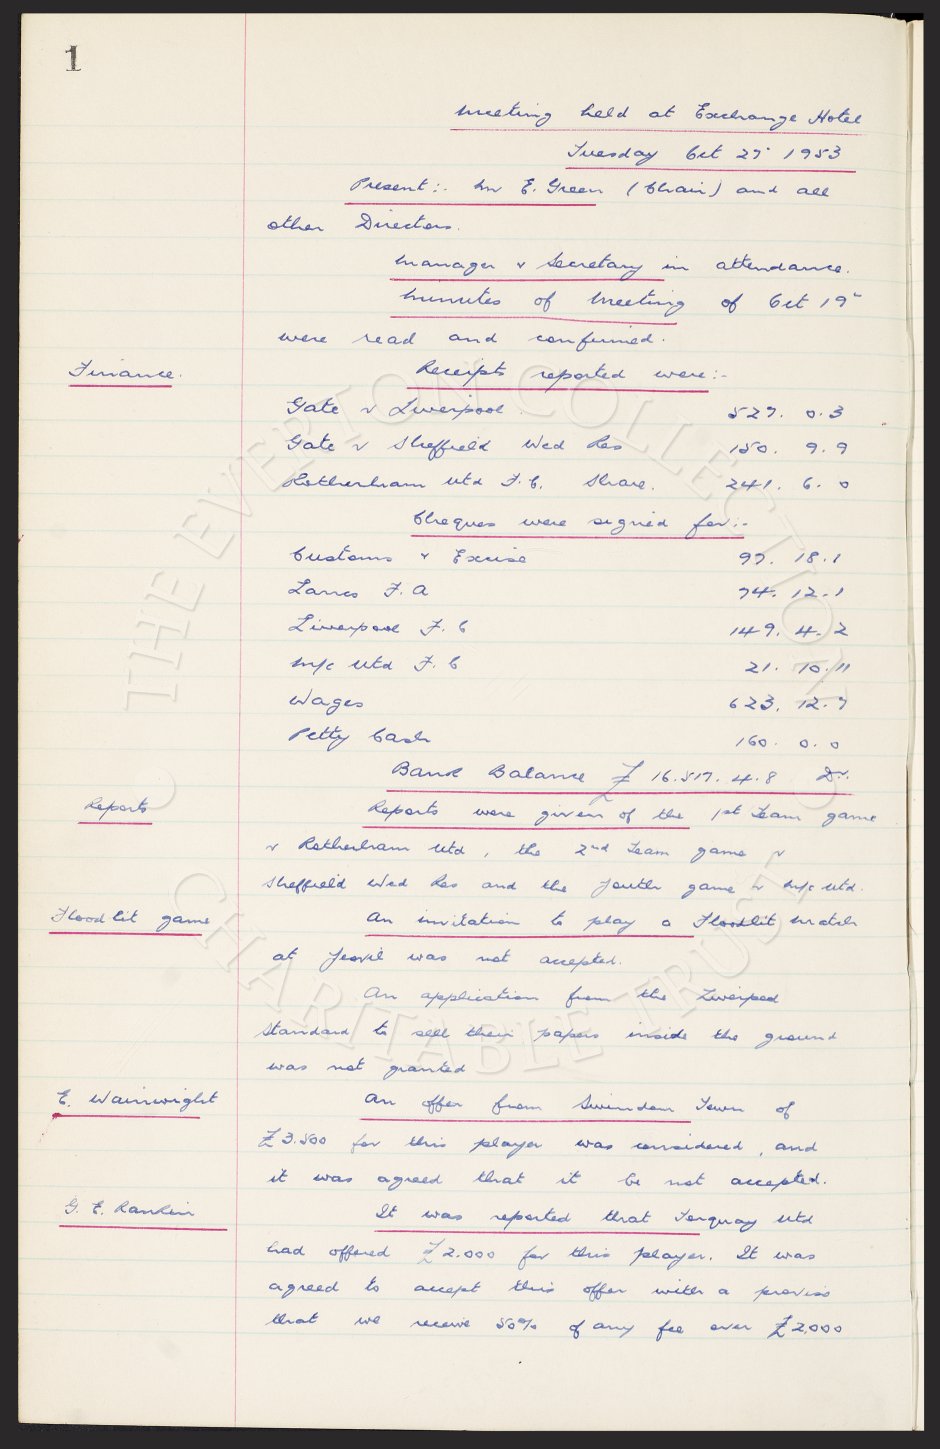 1
Meeting held at Exchange Hotel
Tuesday Oct 27th 1953
Present:- Mr E. Green (Chair) and all
other Directors.
Manager & Secretary in attendance.
Minutes of Meeting of Oct 19th
were read and confirmed.
Finance.
Receipts reported were:-
Gate v Liverpool. 527. 0. 3
Gate v Sheffield Wed Res 150. 9. 9
Rotherham Utd F.C. Share. 241. 6. 0
Cheques were signed for:-
Customs & Excise 97. 18. 1
Lancs F.A 74. 12. 1
Liverpool F.C 149. 4. 2
M/c Utd F.C 21. 10. 11
Wages 623. 12. 7
Petty Cash 160. 0. 0
Bank Balance £16.517. 4. 8 Dr.
Reports
Reports were given of the 1st Team game
v Rotherham Utd, the 2nd Team game v
Sheffield Wed Res and the Youth game v M/c Utd.
Floodlit game
An invitation to play a Floodlit match
at Yeovil was not accepted.
An application from the Liverpool
Standard to sell their papers inside the ground
was not granted
E. Wainwright
An offer from Swindon Town of
£3.500 for this player was considered, and
it was agreed that it be not accepted.
G. E. Rankin
It was reported that Torquay Utd
had offered £2.000 for this player. It was
agreed to accept this offer with a proviso
that we receive 50% of any fee over £2,000
© THE EVERTON COLLECTION
CHARITABLE TRUST